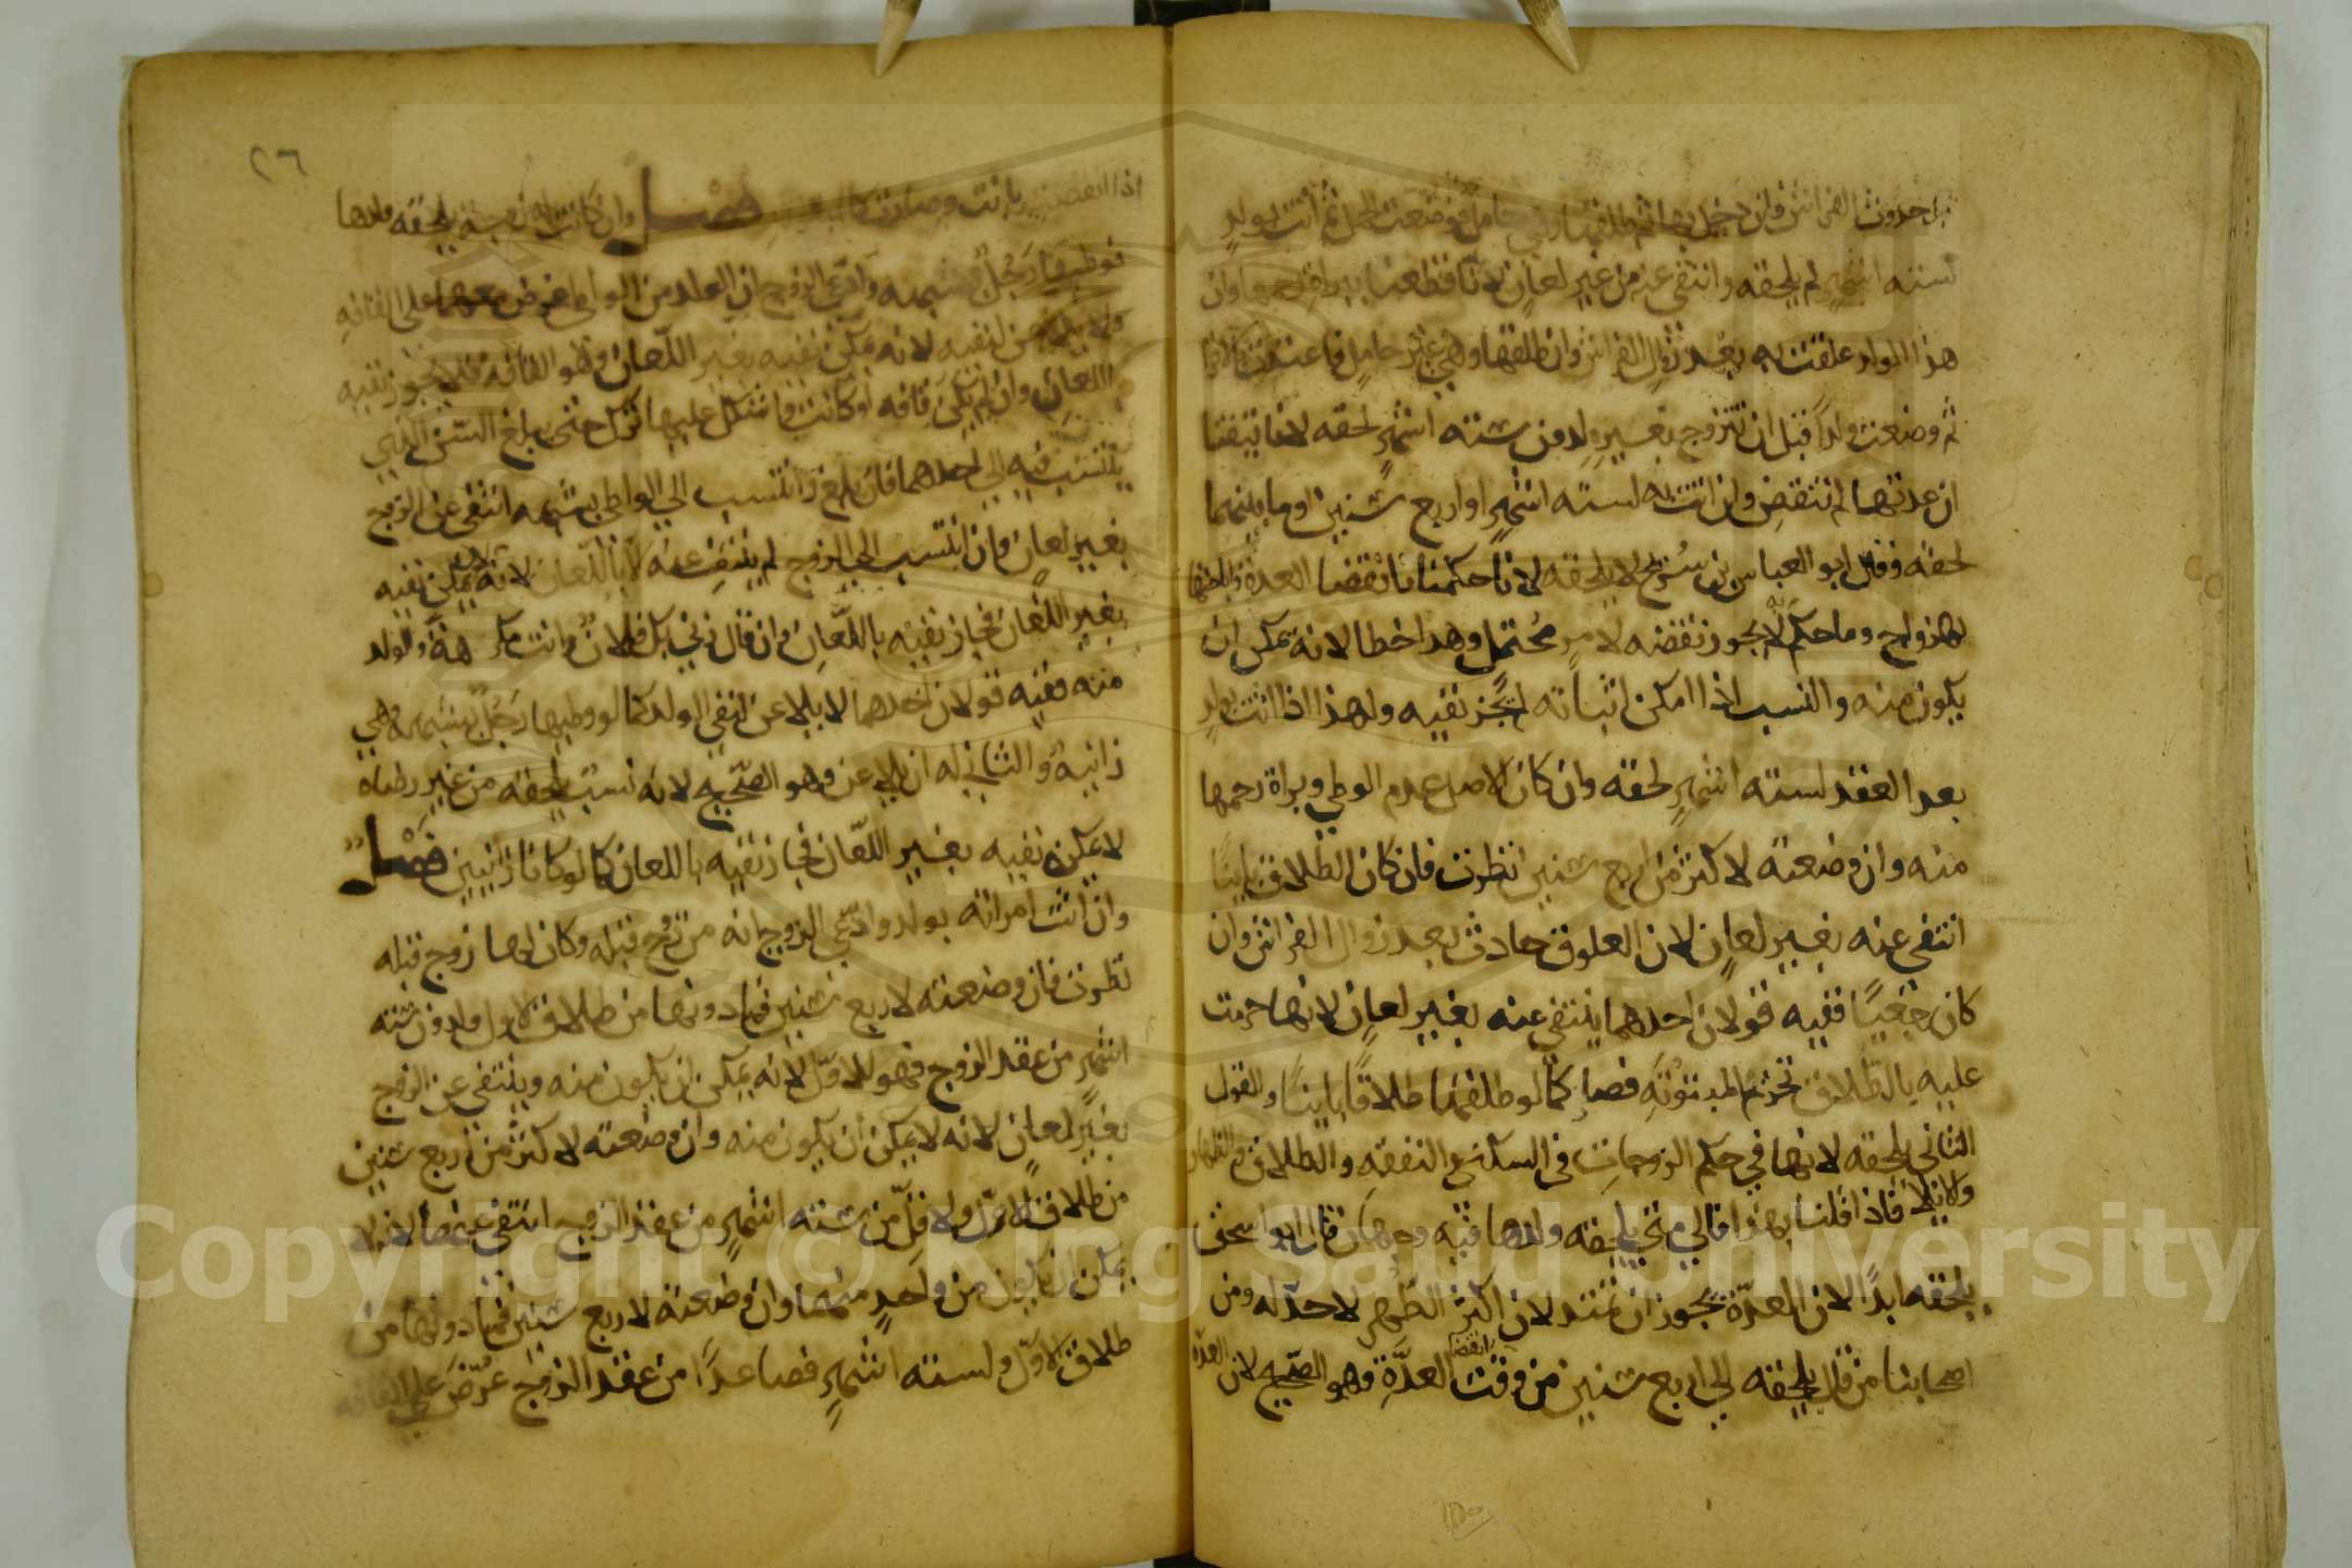 حدوث الفراش فان دخل بها ثم طلقها وهي حامل فوضعت الحمل ثم اتت بولد
لستة اشهر لم يلحقه وانتفى عنه من غير لعان لانا قطعنا ببراة رحمها وان
هذا الولد علقت به بعد زوال الفراش وان طلقها وهي غير حامل فاعتدت بالاقرا
ثم وضعت ولدا قبل ان تتزوج بغيره لدون ستة اشهر لحقه لانا تيقنا
ان عدتها لم تنقض وان اتت به لستة اشهر او اربع سنين او ما بينهما
لحقه وقال ابو العباس بن سريج لا يلحقه لانا حكمنا بانقضا العدة واباحتها
للازواج وما حكم به لا يجوز نقضه لامر محتمل وهذا خطا لانه يمكن ان
يكون منه والنسب اذا امكن اثباته لم يجز نفيه ولهذا اذا اتت بولد
بعد العقد لستة اشهر لحقه وان كان الاصل عدم الوطي وبراة رحمها
منه وان وضعته لاكثر من اربع سنين نظرت فان كان الطلاق باينا
انتفى عنه بغير لعان لان العلوق حادث بعد زوال الفراش وان
كان رجعيا ففيه قولان احدهما ينتفي عنه بغير لعان لانها حرمت
عليه بالطلاق تحريم المبتوتة فصار كما لو طلقها طلاقا باينا والقول
الثاني يلحقه لانها في حكم الزوجات في السكنى والنفقة والطلاق والظهار
والايلا فاذا قلنا بهذا فالى متى يلحقه ولدها فيه وجهان قال ابو اسحق
يلحقه ابدا لان العدة يجوز ان تمتد لان اكثر الطهر لا حد له ومن
اصحابنا من قال يلحقه الى اربع سنين من وقت انقضا العدة وهو الصحيح لان العدة
٢٦
اذا انقضت بانت وصارت فصل وان كانت له زوجة يلحقه ولدها
فوطيها رجل بشبهة وادعى الزوج ان الولد من الواطي عرض معهما على القافة
ولا يلاعن لنفيه لانه يمكن نفيه بغير اللعان وهو القافة فلا يجوز نفيه
باللعان وان لم تكن قافة او كانت واشكل عليها ترك حتى يبلغ السن الذي
ينتسب فيه الى احدهما فان بلغ وانتسب الى الواطي بشبهة انتفى عن الزوج
بغير لعان وان انتسب الى الزوج لم ينتف عنه الا باللعان لانه لا يمكن نفيه
بغير اللعان فجاز نفيه باللعان وان قال زنى بك فلان وانت مكرهة والولد
منه ففيه قولان احدهما لا يلاعن لنفي الولد كما لو وطيها رجل بشبهة وهي
زانية والثاني له ان يلاعن وهو الصحيح لانه نسب يلحقه من غير رضاه
لا يمكن نفيه بغير اللعان فجاز نفيه باللعان كما لو كانا زانيين فصل
وان اتت امراته بولد وادعى الزوج انه من زوج قبله وكان لها زوج قبله
نظرت فان وضعته لاربع سنين فما دونها من طلاق الاول ولدون ستة
اشهر من عقد الزوج فهو للاول لانه يمكن ان يكون منه وينتفي عن الزوج
بغير لعان لانه لا يمكن ان يكون منه وان وضعته لاكثر من اربع سنين
من طلاق الاول ولاقل من ستة اشهر من عقد الزوج انتفى عنهما لانه لا
يمكن ان يكون من واحد منهما وان وضعته لاربع سنين فما دونها من
طلاق الاول ولستة اشهر فصاعدا من عقد الزوج عرض على القافة
Copyright © King Saud University